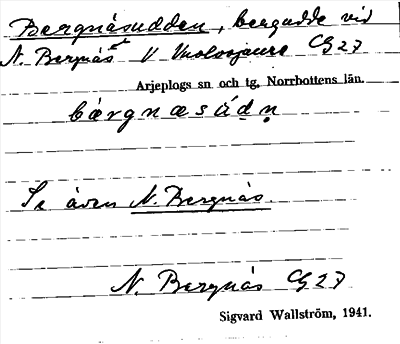 Bergnäsudden, bergudde vid
N. Bergnäs V Vuolvojaure Cg 27
Arjeplogs sn och tg, Norrbottens län.
bærgnæsúdn
Se även N. Bergnäs.
N. Bergnäs Cg 27
Sigvard Wallström, 1941.